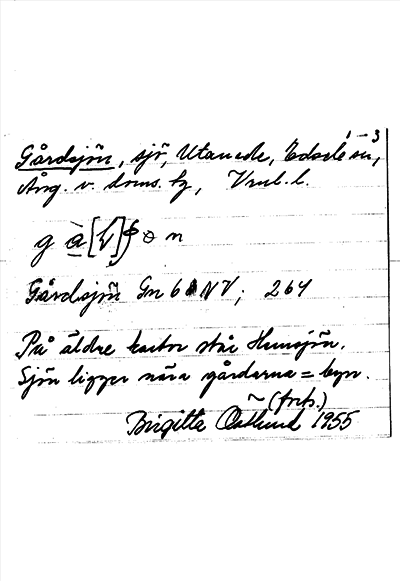 1-3
Gårdsjön, sjö, Utanede, Edsele sn,
Ång. v. doms. tg, Vnl. l.
Gårdsjön Gn 6 NV; 264
På äldre kartor står Hunsjön.
Sjön ligger nära gårdarna = byn.
(forts.)
Birgitta Östlund 1955